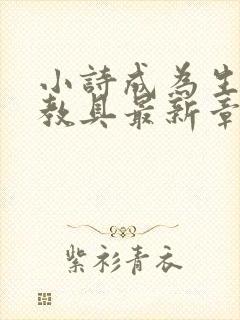 小詩成為生
教具最新章
紫衫青衣